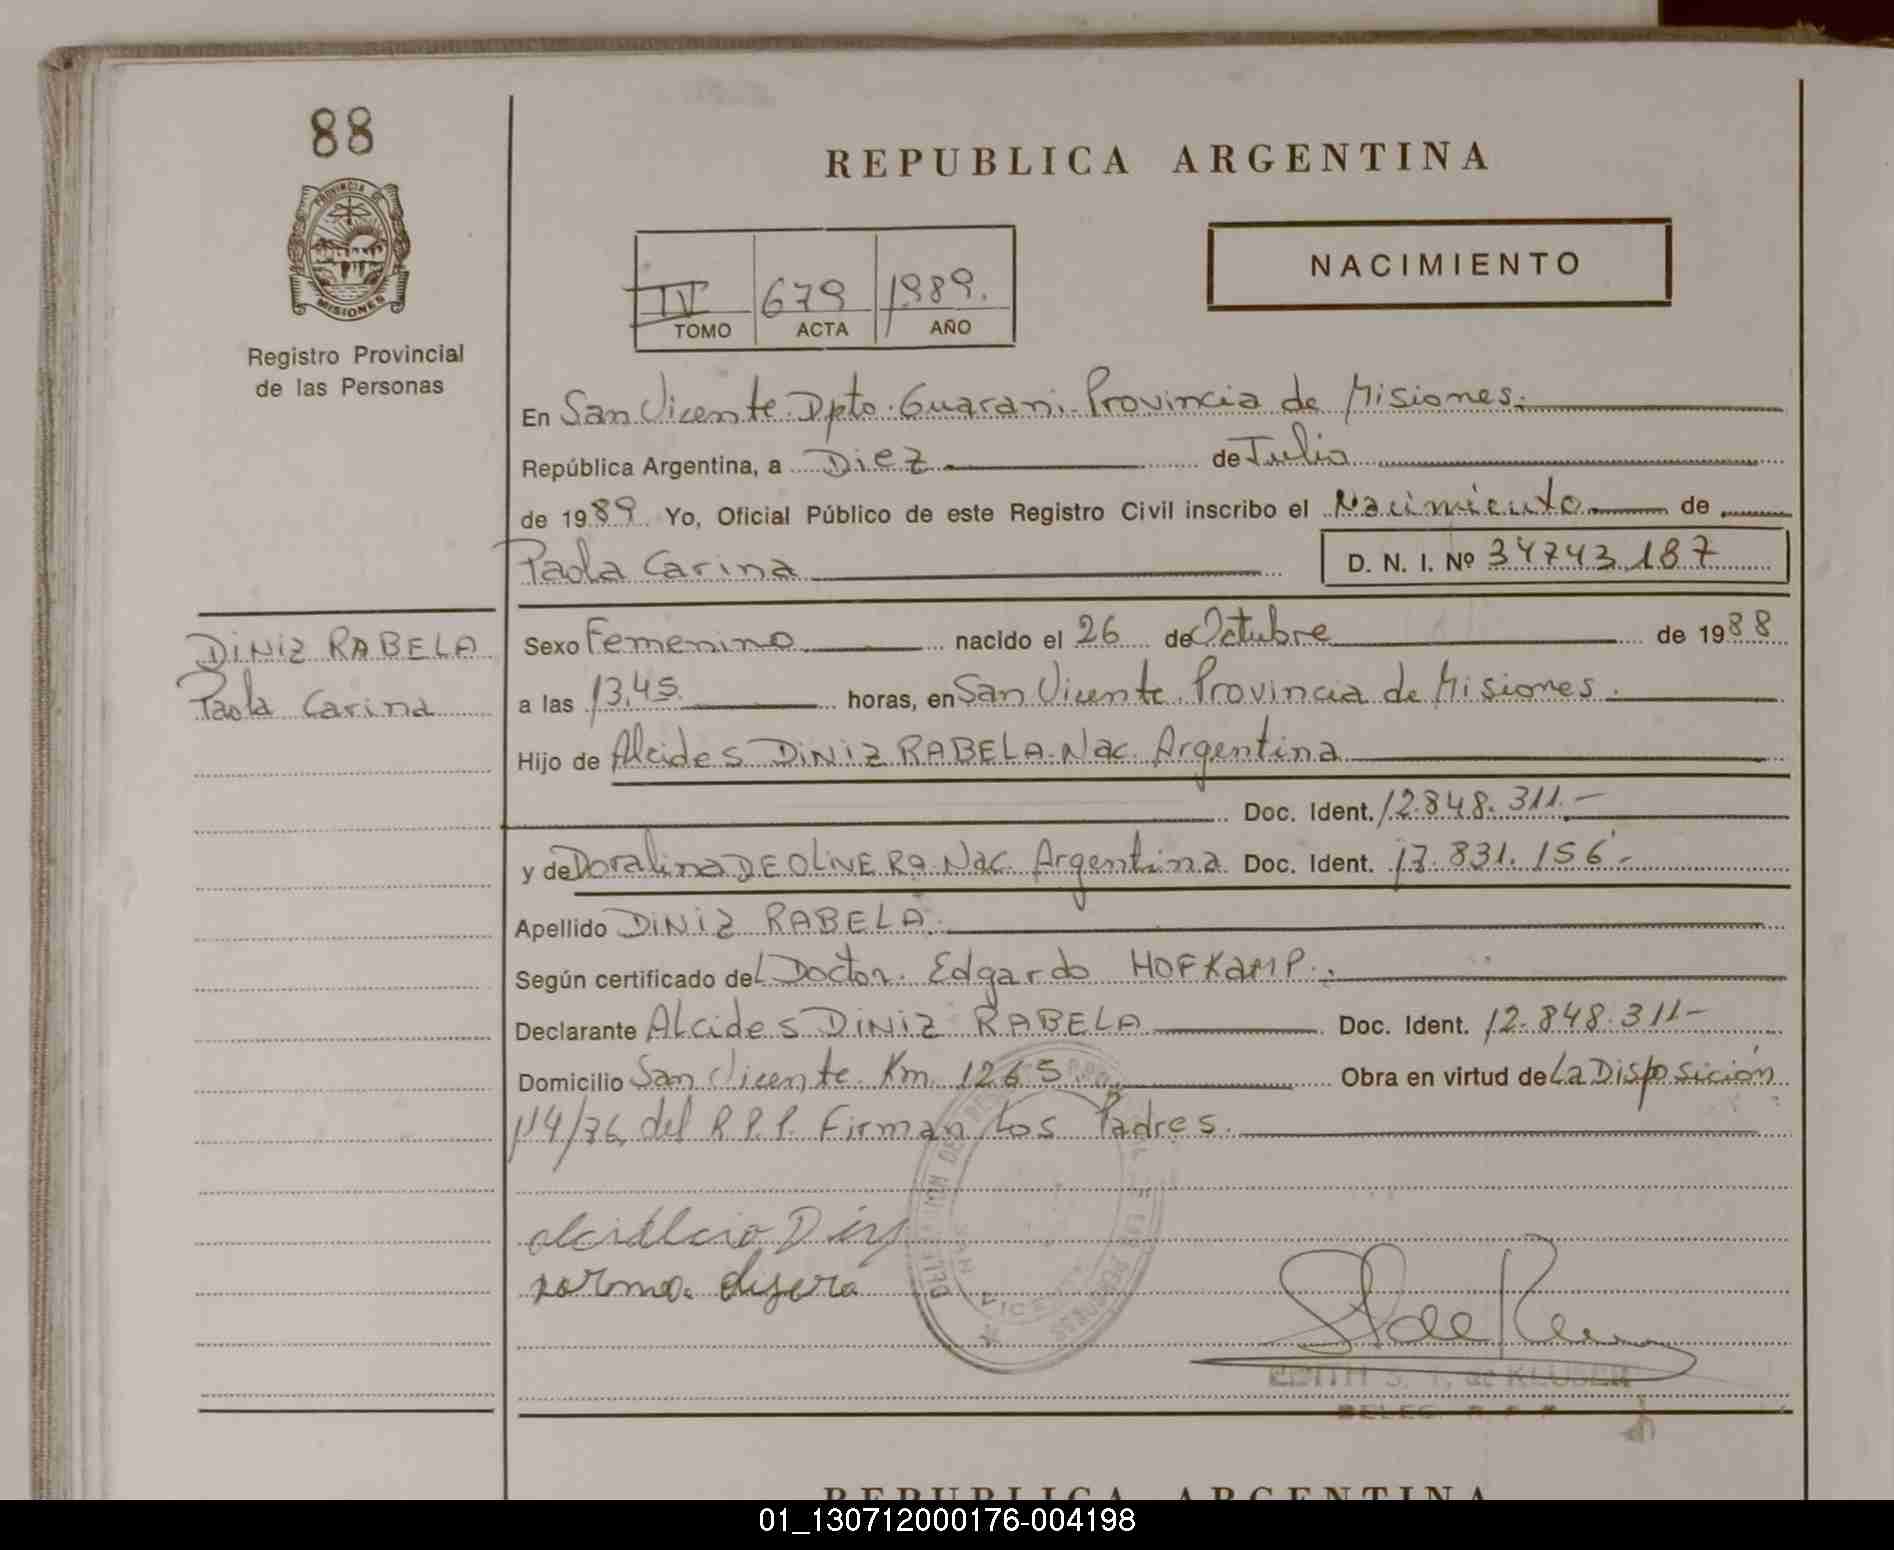 88
PROVINCIA DE
MISIONES
Registro Provincial
de las Personas
REPUBLICA ARGENTINA
NACIMIENTO
IV 679 1989.
TOMO ACTA AÑO
En San Vicente Dpto. Guarani. Provincia de Misiones.
República Argentina, a Diez de Julio
de 1989 Yo, Oficial Público de este Registro Civil inscribo el Nacimiento de
Paola Carina D. N. I. Nº 34743.187
DiNiZ RABELA
Paola Carina
Sexo Femenino nacido el 26 de Octubre de 1988
a las 13,45. horas, en San Vicente. Provincia de Misiones.
Hijo de Alcides DiNiZ RABELA. Nac. Argentina
Doc. Ident. 12.848.311.-
y de Doralina DE OLiVERA. Nac. Argentina Doc. Ident. 17.831.156.-
Apellido DiNiZ RABELA.
Según certificado del Doctor. Edgardo HOFKAMP.
Declarante Alcides DiNiZ RABELA Doc. Ident. 12.848.311-
Domicilio San Vicente. Km. 1265 Obra en virtud de La Disposición
114/76, del R.P.P. Firman Los Padres.
SAN VICENTE
EDITH S. T. de KLUSER
DELEG. R. P. P.
REPUBLICA ARGENTINA
01_130712000176-004198